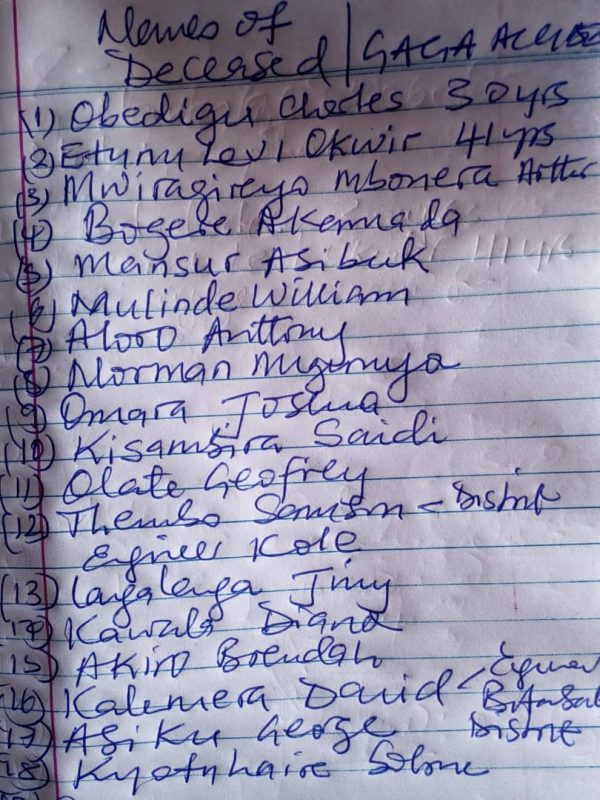 Names of
Deceased | GAGA
(1) Obedigu Charles 30yrs
(2) Etunu Levi Okwir 41 yrs
(3) Mwiragireyo Mbonera
(4) Bogere Akennada
(5) Mansur Asibuk
(6) Mulinde William
(7) Aloro Anttony
(8) Norman
(9) Omara Joshua
(10) Kisambira Saidi
(11) Olate Geofrey
(12) Thembo Samson - District
Engineer Kole
(13) Layalenga Jimy
(14) Kawala Diana
(15) Akiro Brendah
(16) Kalemera David - Engineer
(17) Asiku George District
(18) Kyotuhaire